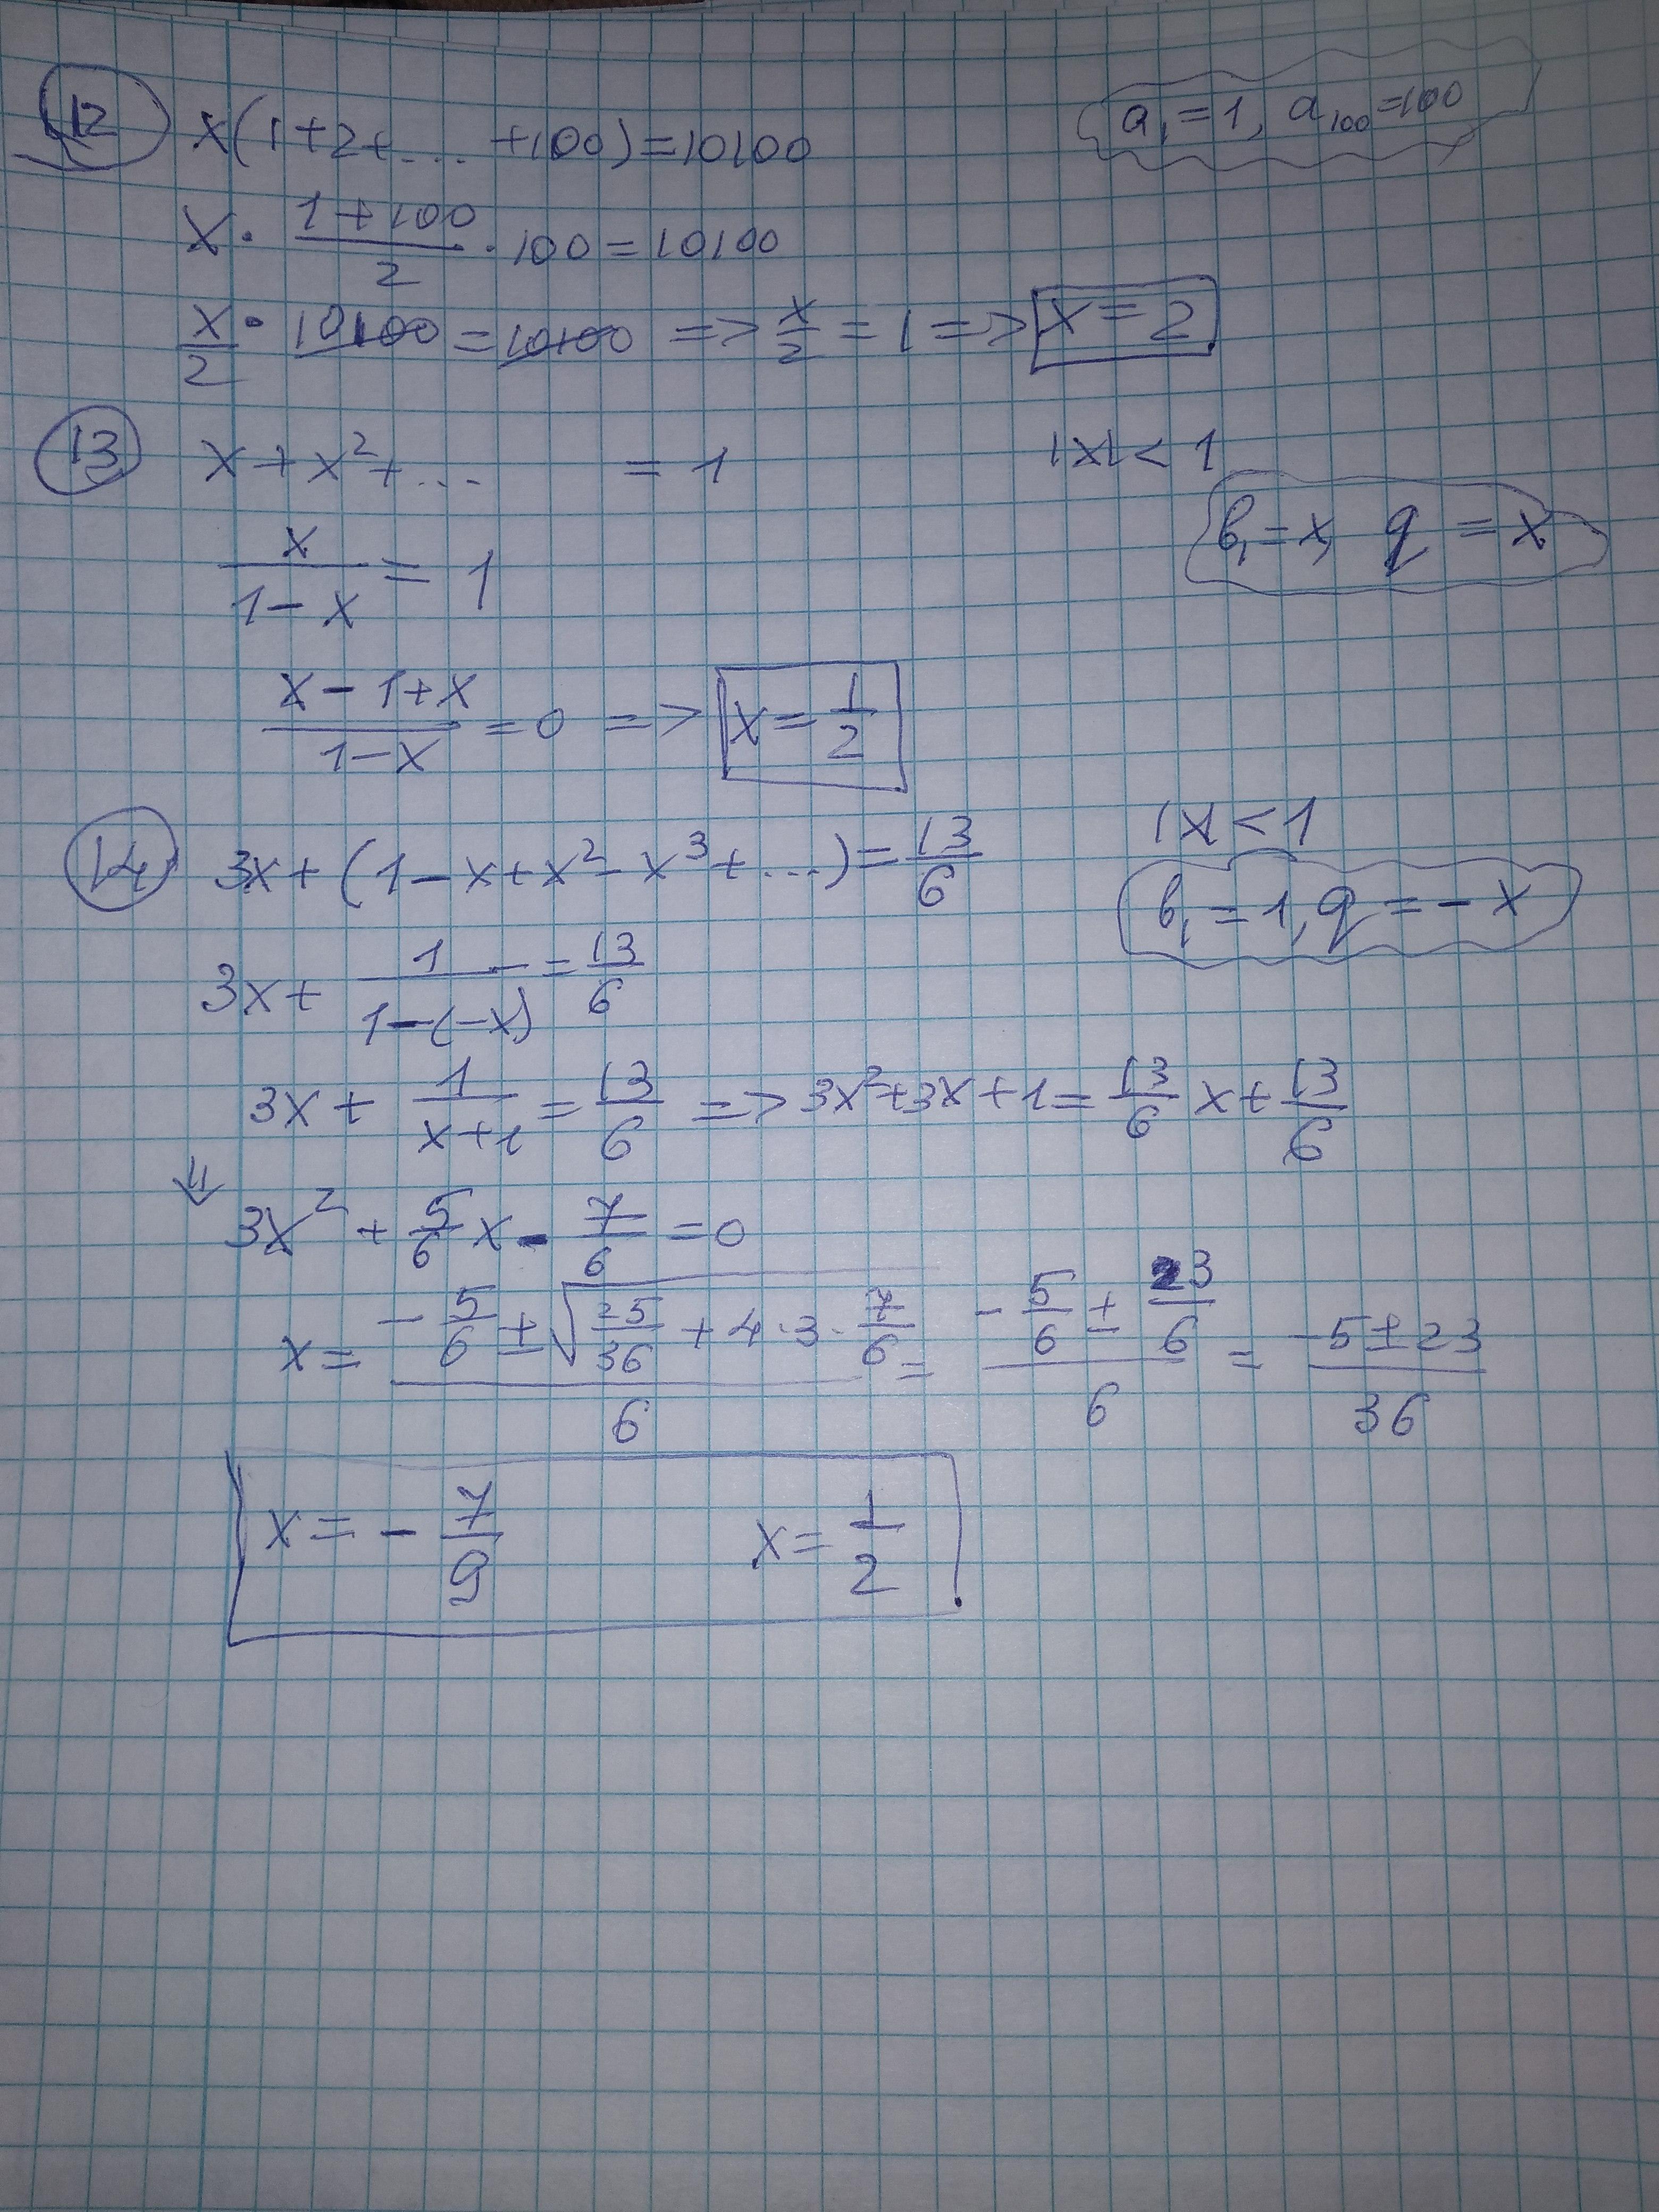 12
x(1+2+... +100)=10100
a₁=1, a₁₀₀=100
x · (1+100)/2 · 100 = 10100
x/2 · 10100 = 10100 => x/2 = 1 => x = 2
13
x + x² + ... = 1
|x| < 1
b₁ = x, q = x
x/(1-x) = 1
(x-1+x)/(1-x) = 0 => x = 1/2
14
3x + (1 - x + x² - x³ + ...) = 13/6
|x| < 1
b₁ = 1, q = -x
3x + 1/(1-(-x)) = 13/6
3x + 1/(x+1) = 13/6 => 3x² + 3x + 1 = 13/6 x + 13/6
⇓
3x² + 5/6 x - 7/6 = 0
x = (-5/6 ± √(25/36 + 4·3·7/6))/6 = (-5/6 ± 23/6)/6 = (-5 ± 23)/36
x = -7/9 x = 1/2